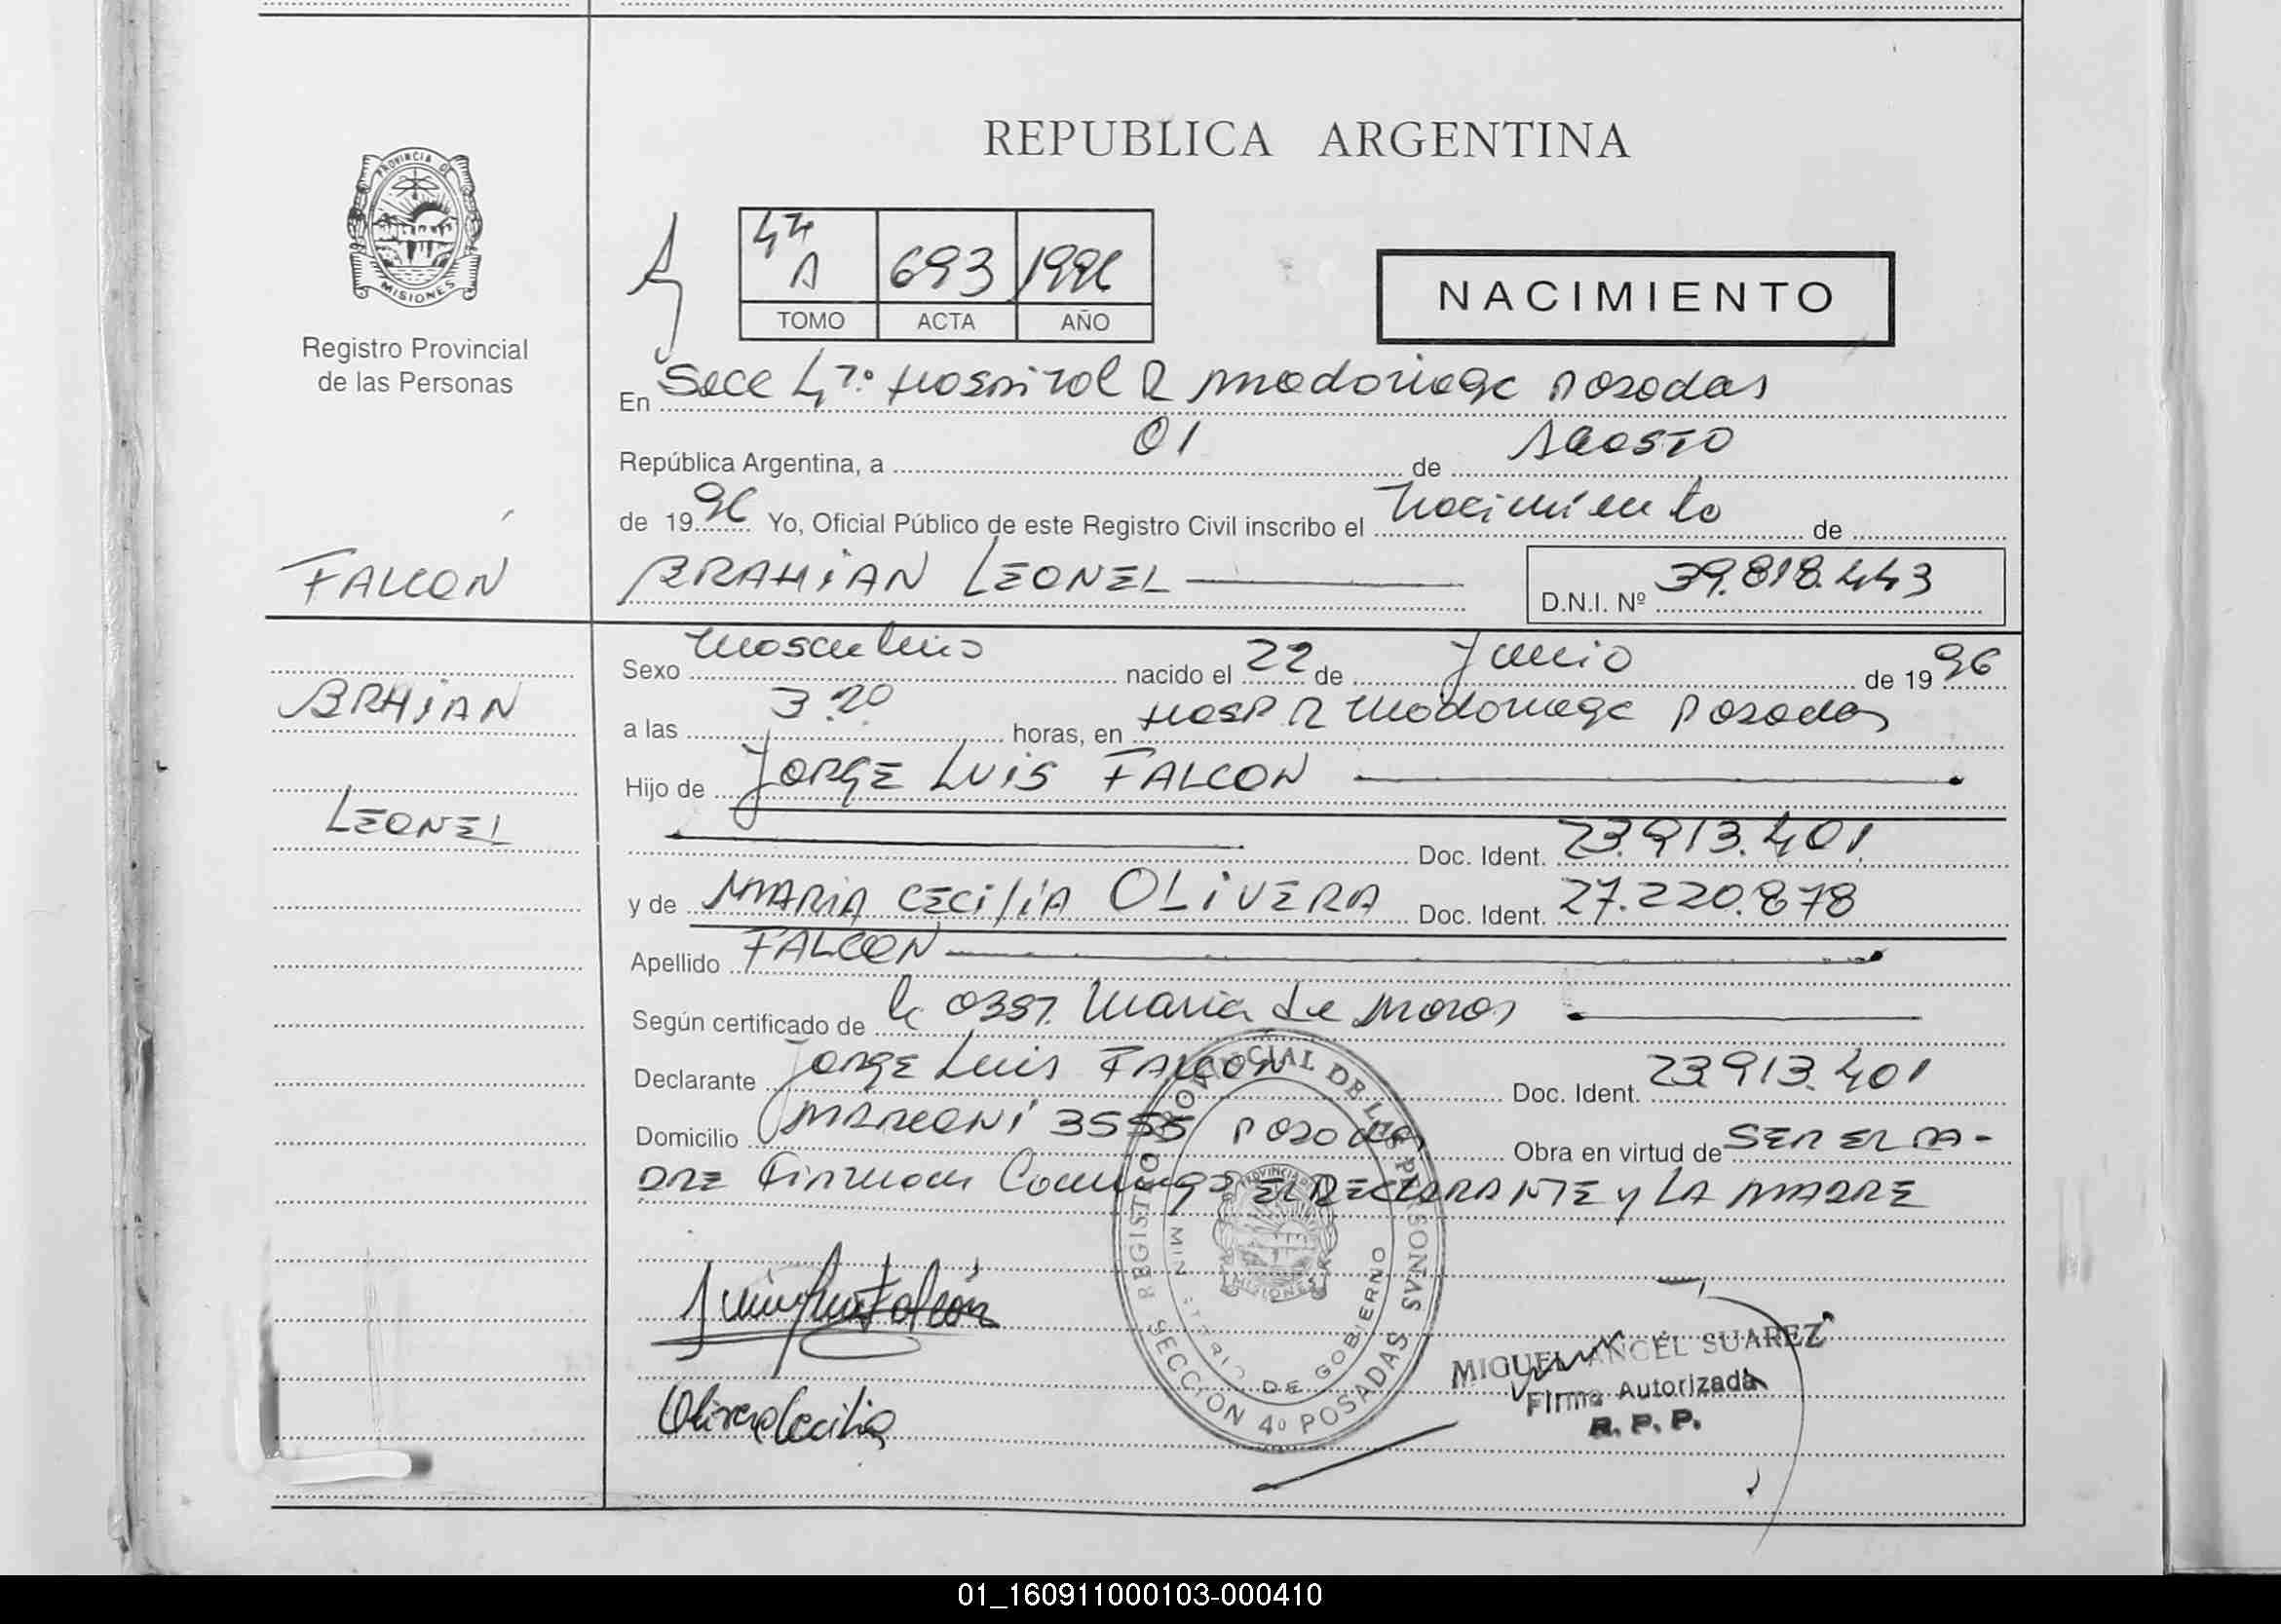 REPUBLICA ARGENTINA
PROVINCIA DE
MISIONES
Registro Provincial
de las Personas
4ta
A 693 1996
TOMO ACTA AÑO
NACIMIENTO
En Secc 4ta. Hospital R Madariaga Posadas
República Argentina, a 01 de Agosto
de 1996 Yo, Oficial Público de este Registro Civil inscribo el Nacimiento de
FALCON
BRAHIAN LEONEL
D.N.I. Nº 39.818.443
Sexo Masculino nacido el 22 de Junio de 1996
BRAHIAN
a las 3.20 horas, en Hosp R Madariaga Posadas
Hijo de JORGE LUIS FALCON
LEONEL
Doc. Ident. 23.913.401.
y de MARIA CECILIA OLIVERA Doc. Ident. 27.220.878
Apellido FALCON
Según certificado de la Obst. Maria de Moros
Declarante Jorge Luis FALCON Doc. Ident. 23.913.401
Domicilio MARCONI 3555 Posadas Obra en virtud de SER EL PA-
DRE Firman Conmigo EL DECLARANTE y LA MADRE
REGISTRO PROVINCIAL DE LAS PERSONAS
SECCION 4º POSADAS
MINISTERIO DE GOBIERNO
PROVINCIA
MISIONES
Olivera Cecilia
MIGUEL ANGEL SUAREZ
Firma Autorizada
R. P. P.
01_160911000103-000410